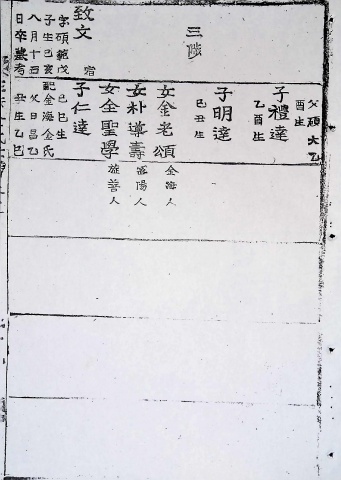 三陟
父碩大乙
酉生
子禮達
乙酉生
子明達
己丑生
女金老頌
金海人
女朴導壽
密陽人
女金聖學
旌善人
子仁達
己巳生
配金海金氏
父日昌乙
丑生乙巳
致文
字碩範戊
子生己亥
八月十四
日卒墓考